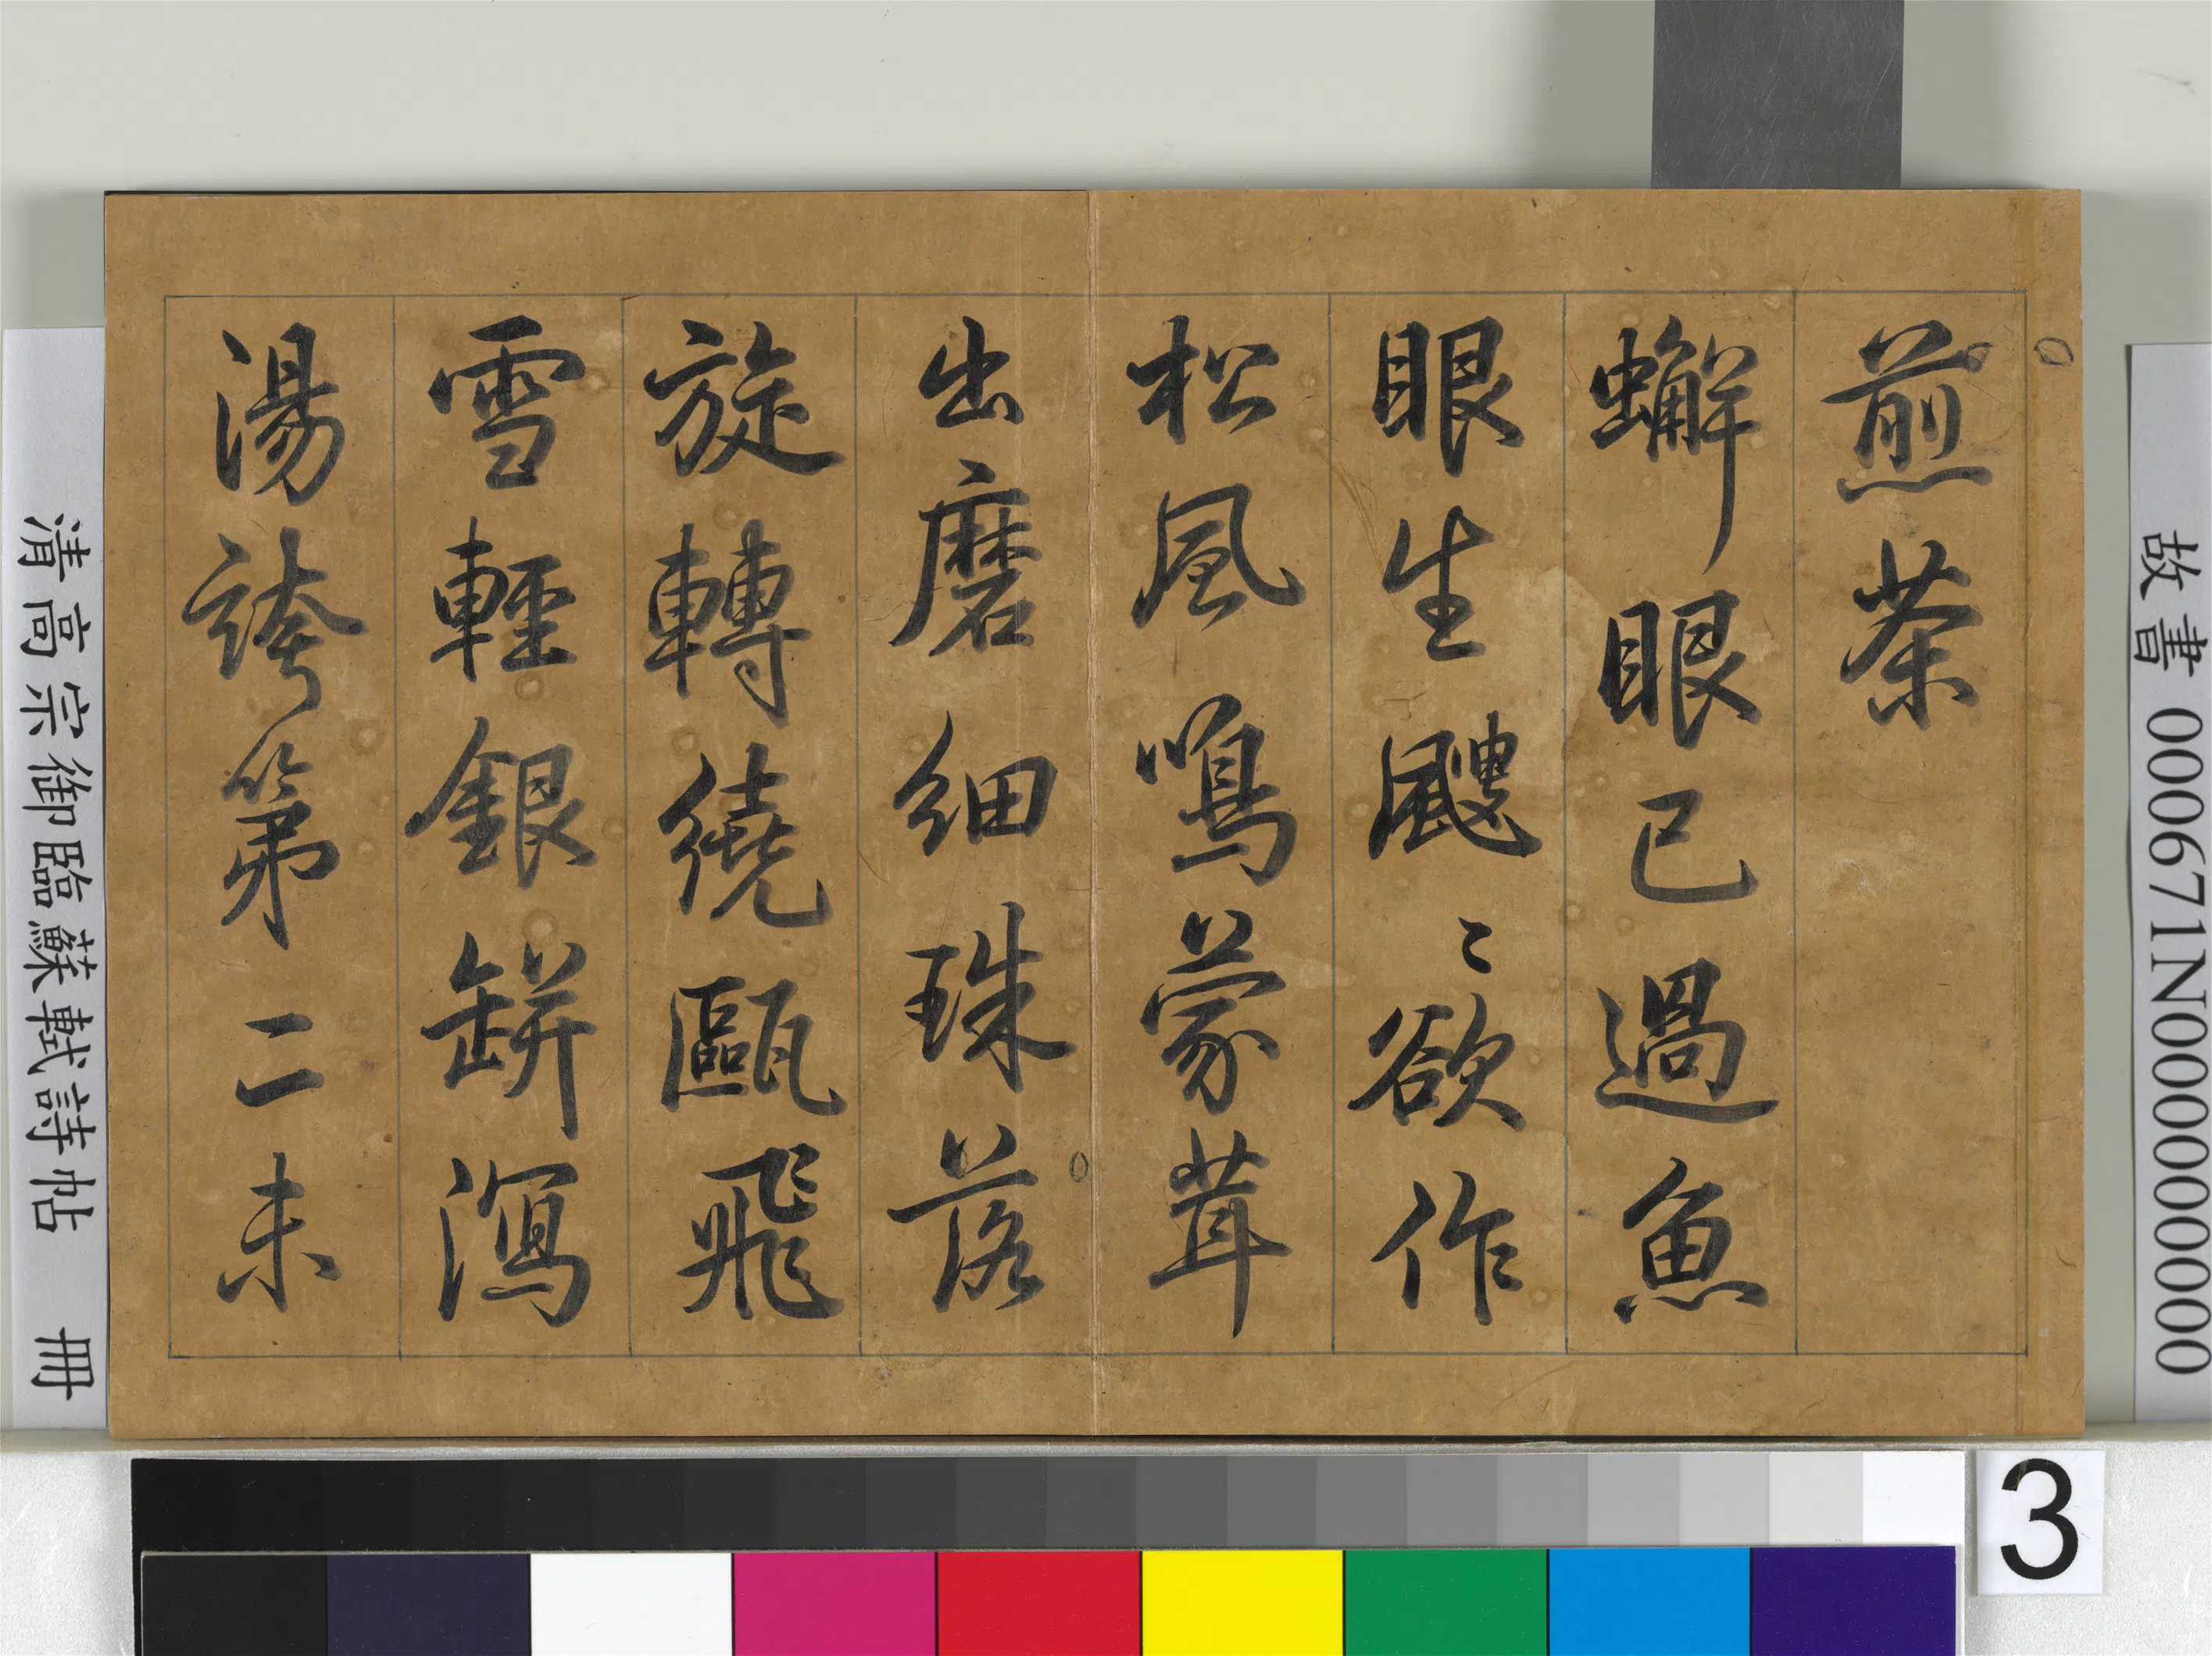 故書 000671N000000000
煎茶
蠏眼已過魚
眼生颼〻欲作
松風鳴蒙茸
出磨細珠落
旋轉繞甌飛
雪輕銀缾瀉
湯誇第二未
清高宗御臨蘇軾詩帖 冊
3